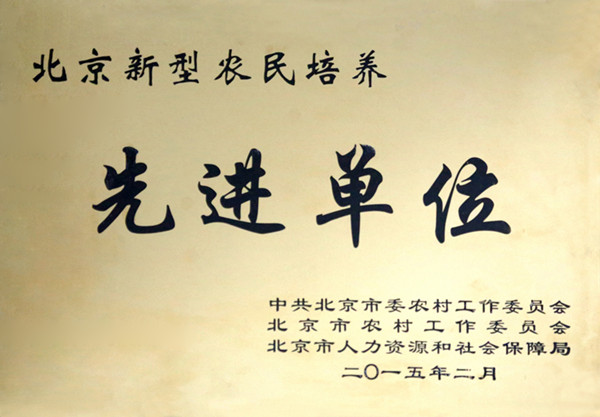 北京新型农民培养
先进单位
中共北京市委农村工作委员会
北京市农村工作委员会
北京市人力资源和社会保障局
二〇一五年二月